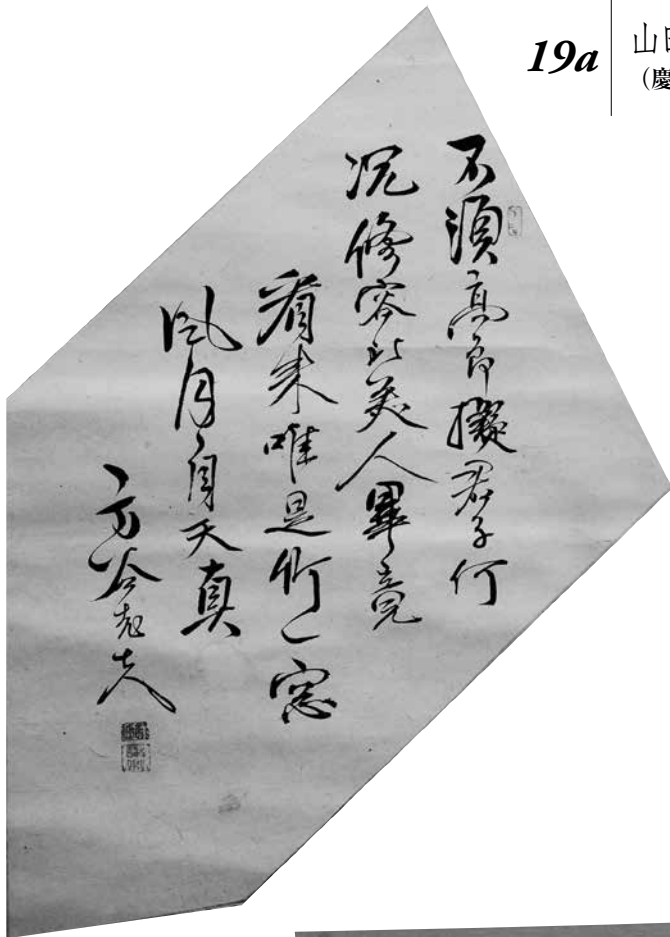 19a
山
(慶
不須高節擬君子何
況修容比美人畢竟
看来唯是竹一窓
風月自天真
方谷老夫